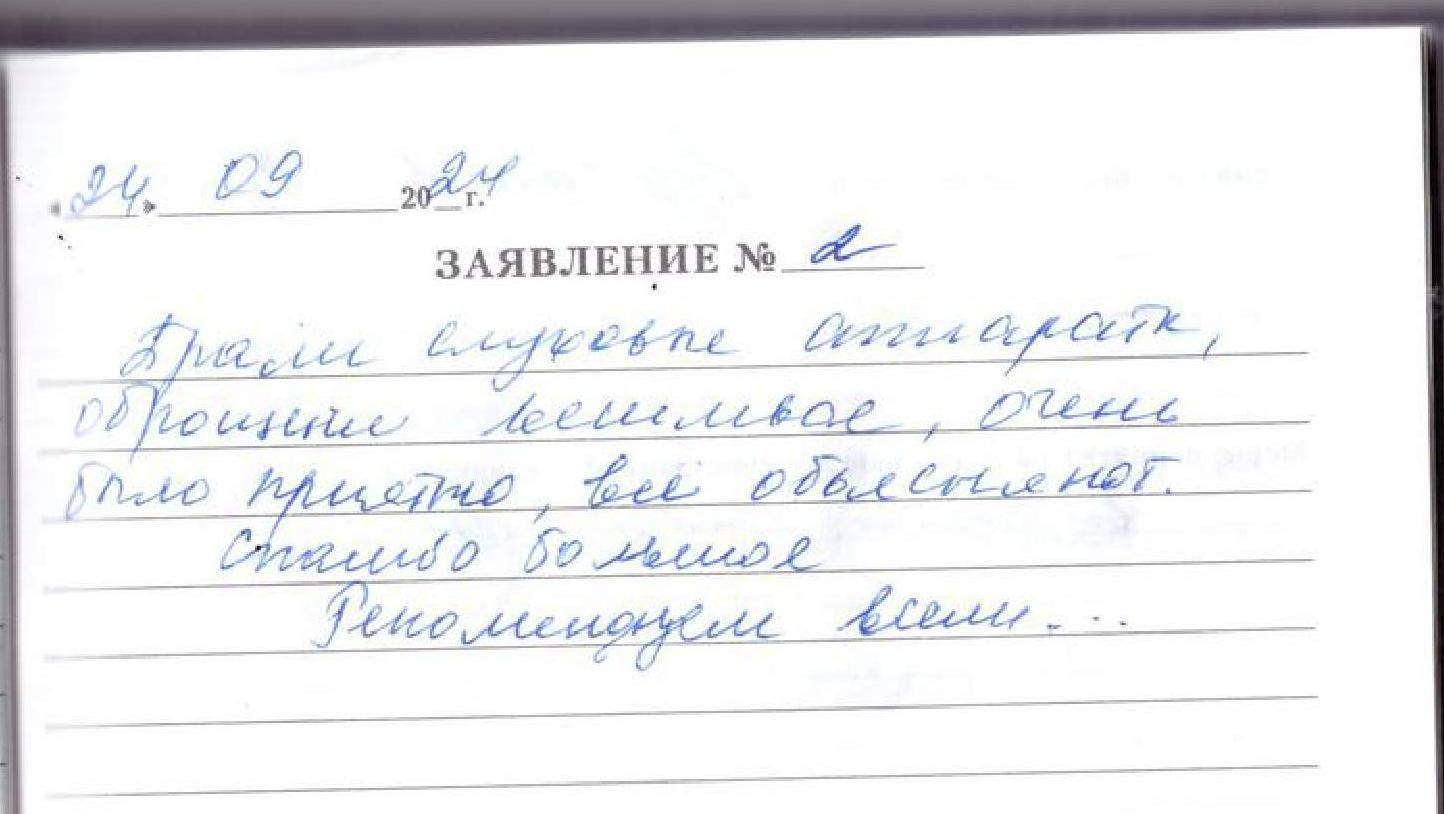 «24» 09 2024 г.
ЗАЯВЛЕНИЕ № 2
Брали слуховые аппараты,
обращение вежливое, очень
было приятно, все объясняют.
Спасибо большое
Рекомендуем всем...